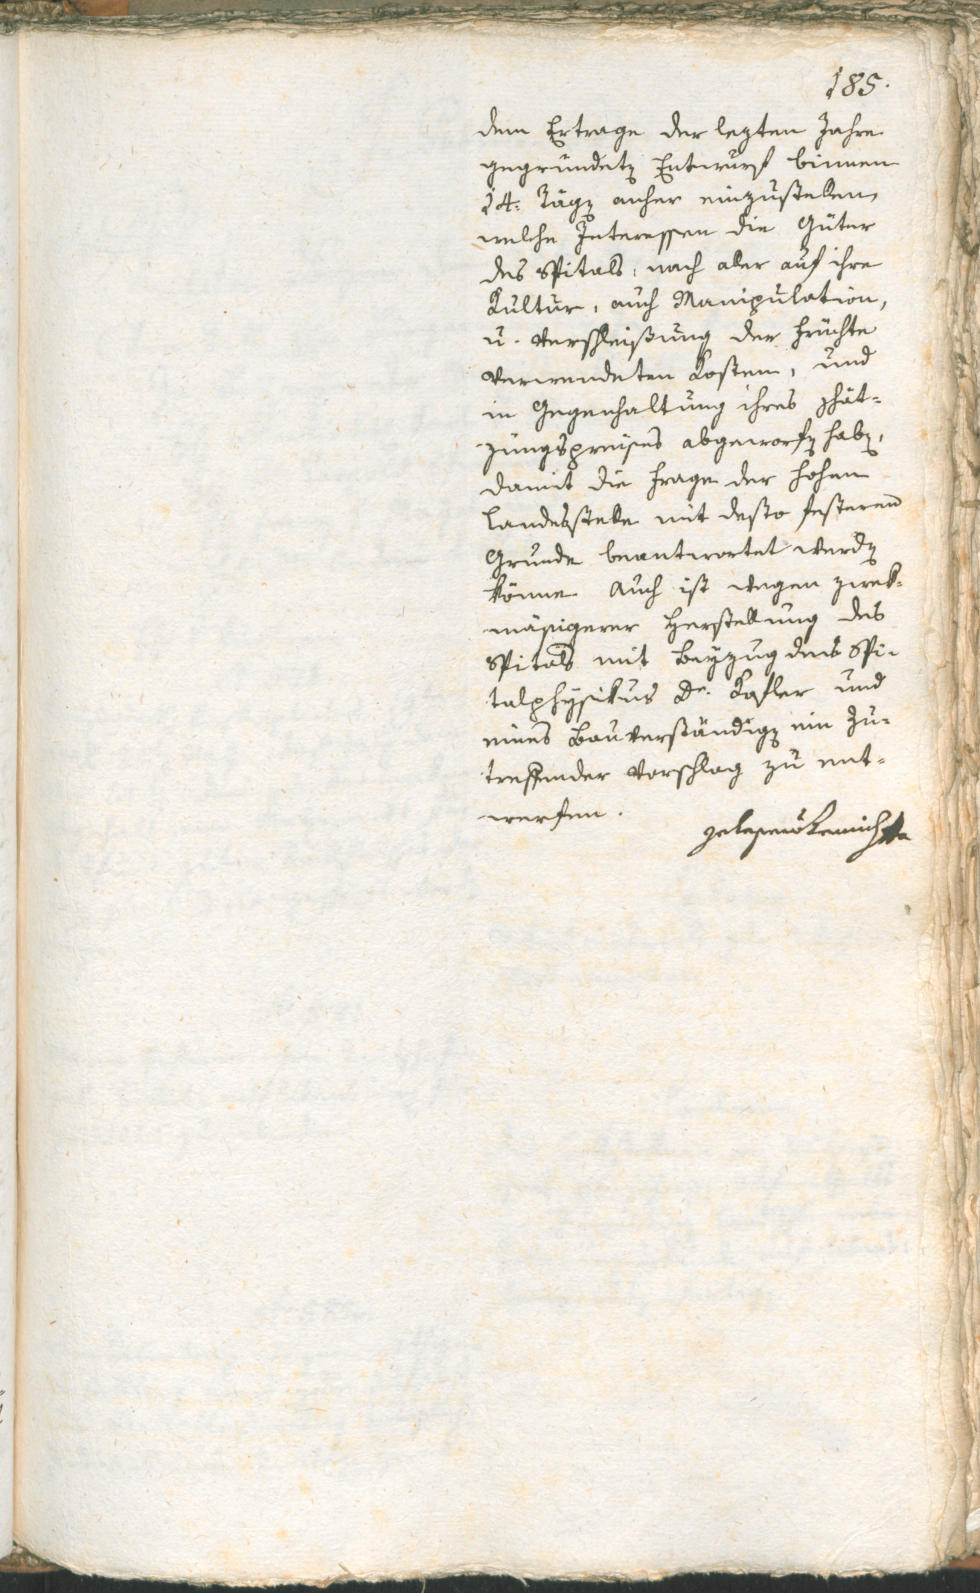 185.
dem Ertrage der lezten Jahre
gegründetn Entwurf binnen
14. Tägn anher einzustellen,
welche Interessen die Güter
des Spitals, nach aller auf ihre
Kultur, auch Manipulation,
u. Verschleißung der Früchte
verwendeten Kosten, und
in Gegenhaltung ihres schät-
zungspreises abgeworfn habn,
damit die Frage der hohen
Landesstelle mit desto festeren
Grunde beantwortet werdn
könne. Auch ist wegen zwek-
mäsigerer Herstellung des
Spitals mit Beyzug des Spi-
talphysikus Dr. und
eines Bauverständign ein zu-
treffender Vorschlag zu ent-
werfen.